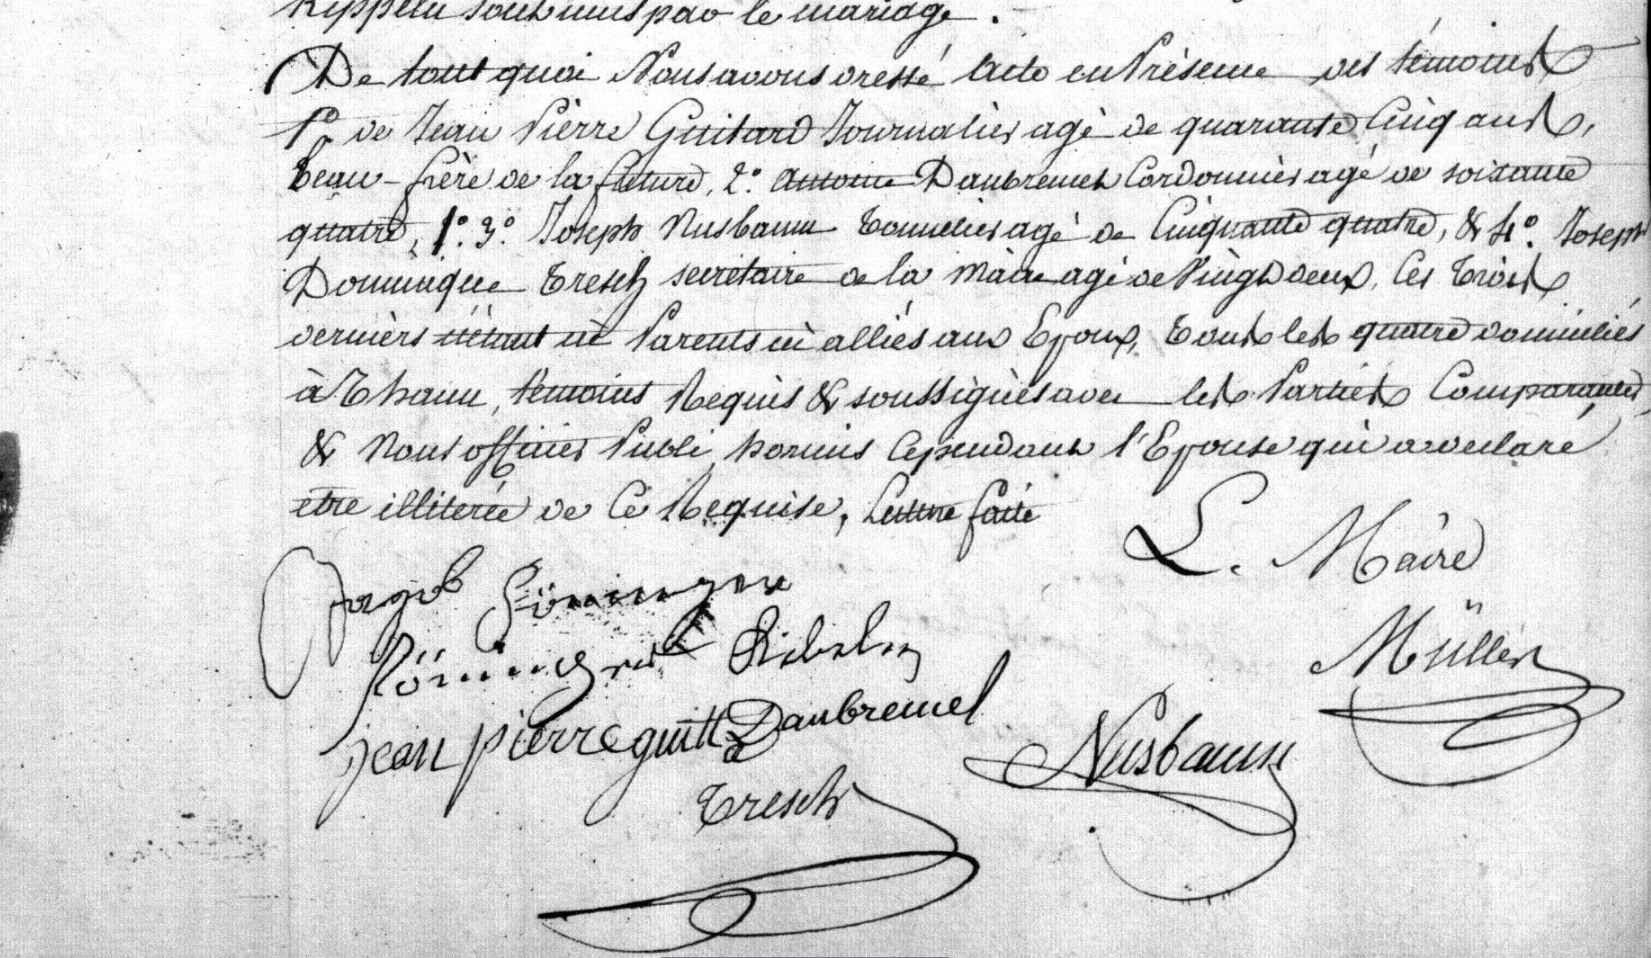 sont unis par le mariage.
De tout quoi Nous avons dressé Acte en Présence des témoins
1º de Jean Pierre Guitard Journalier agé de quarante Cinq ans,
beau-frère de la future, 2º. Antoine Daubremel Cordonnier agé de soixante
quatre, 1º. 3º. Joseph Nusbaum Tonnelier agé de Cinquante quatre, & 4º. Joseph
Dominique Tresch secrétaire de la Mairie agé de Vingt deux, Ces trois
derniers n'étant ni Parents ni alliés aux Epoux, tous les quatre domiciliés
à Thann, témoins Requis & soussignés avec les Parties Comparantes
& Nous officier Public, hormis Cependant l'Epouse qui a declaré
etre illiterée de Ce Requise, Lecture faite
L. Maire
Jagob
Müller
jean pierre guitt Daubremel
Nusbaum
Tresch